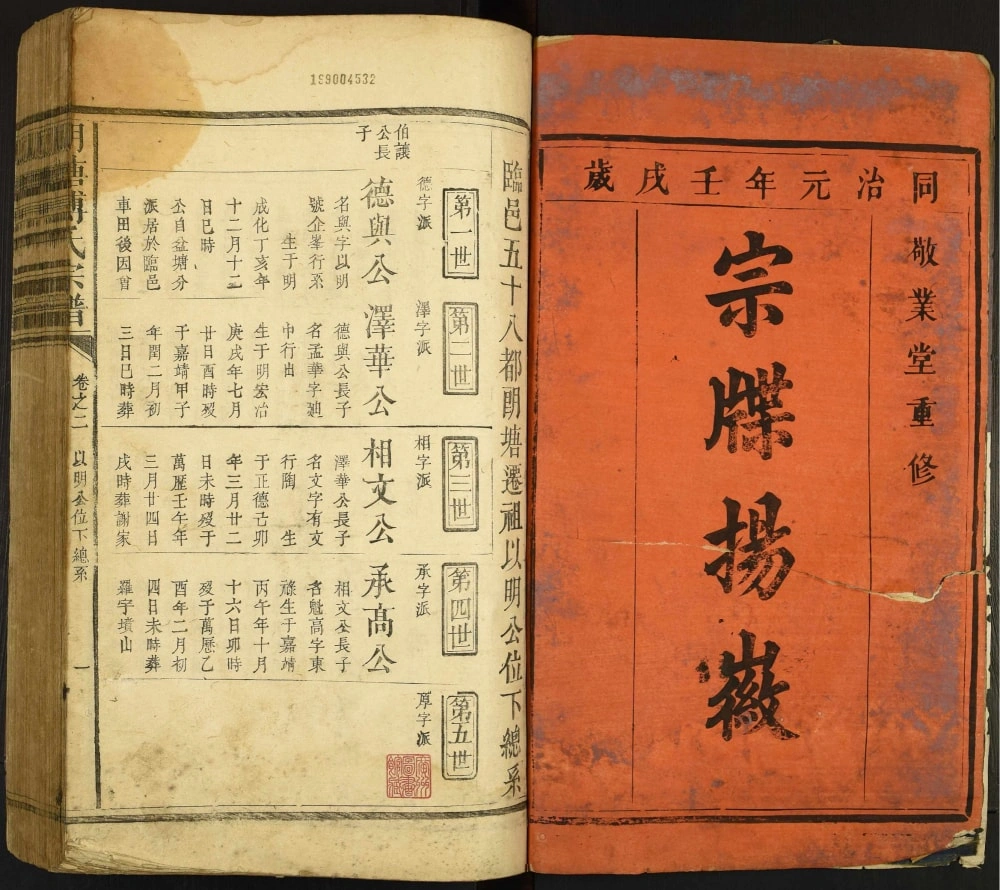 同治元年壬戌歲
敬業堂重修
宗牒揚徽
臨邑五十八都朙塘遷祖以明公位下總系
第一世
德字派
伯讓公長子
德與公
名與字以明
號企峯行系
生于明
成化丁亥年
十二月十二
日巳時
公自盆塘分
派居於臨邑
車田後因曾
第二世
澤字派
澤華公
德與公長子
名孟華字廸
中行出
生于明宏治
庚戌年七月
廿日酉時歿
于嘉靖甲子
年閏二月初
三日巳時葬
第三世
相字派
相文公
澤華公長子
名文字有文
行陶 生
于正德己卯
年三月廿二
日未時歿于
萬歷壬午年
三月廿四日
戌時葬謝家
第四世
承字派
承高公
相文公長子
名魁高字東
祿生于嘉靖
丙午年十月
十六日卯時
歿于萬歷乙
酉年二月初
四日未時葬
羅字墳山
第五世
厚字派
氏宗譜
卷之二
以明公位下總系
一
199004532